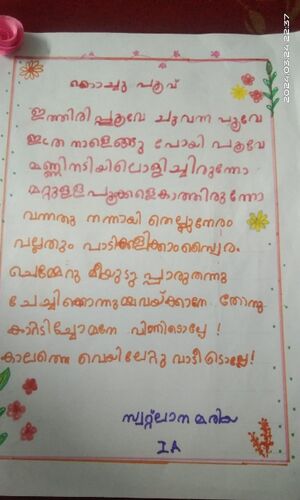 കൊച്ചു പൂവ്
ഇത്തിരിപ്പൂവേ ചുവന്ന പൂവേ
ഇത്ര നാളെങ്ങു പോയി പൂവേ
മണ്ണിനടിയിലൊളിച്ചിരുന്നോ
മറ്റുള്ള പൂക്കളെകാത്തിരുന്നോ
വന്നതു നന്നായി തെല്ലുനേരം
വല്ലതും പാടിക്കളിക്കാംസ്വൈരം
ചെമ്മേറു മീയുടുപ്പാരുതന്നു
ചേച്ചിക്കൊന്നുമ്മവയ്ക്കാനേ തോന്നു
കാറ്റടിച്ചോമനേ വീണിടൊല്ലേ !
കാലത്തെ വെയിലേറ്റു വാടീടൊല്ലേ!
സ്വറ്റ്ലാന മരിയ
I A
2024.03.24 22:37